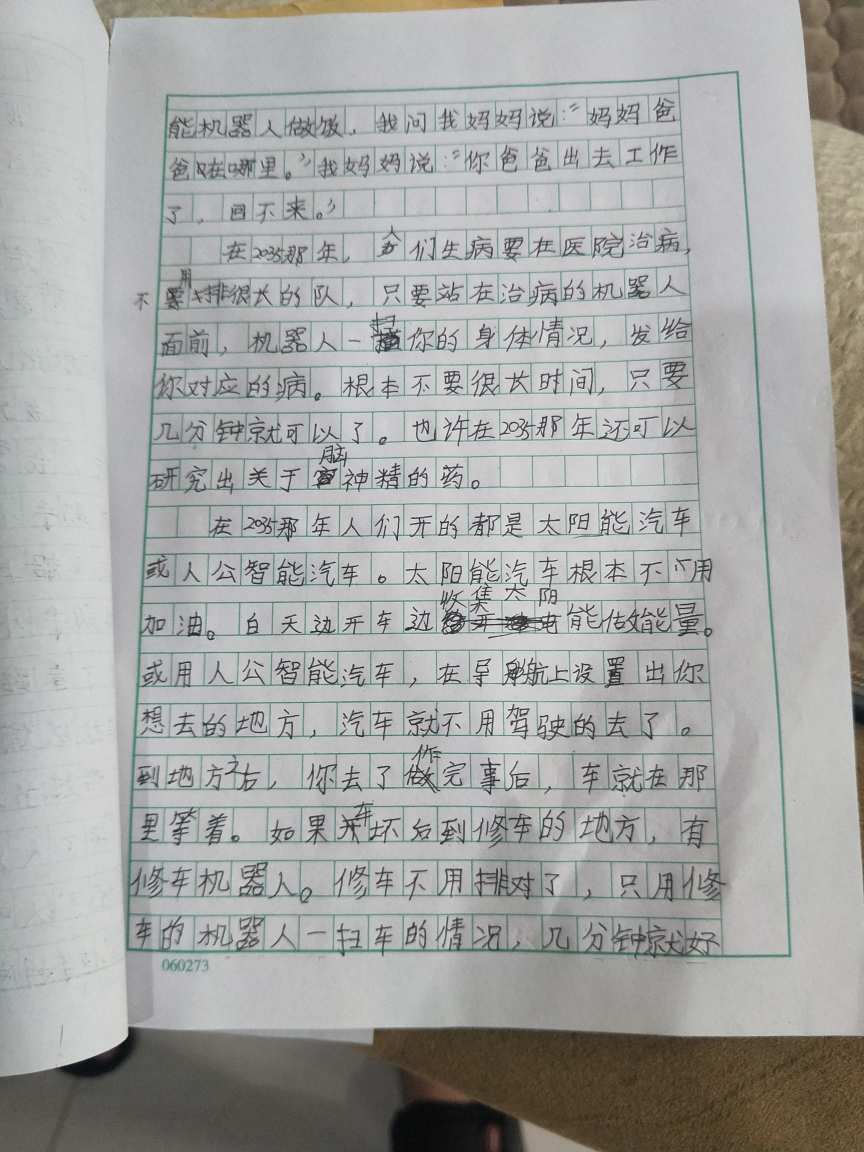 能机器人做饭，我问我妈妈说：“妈妈爸
爸在哪里。”我妈妈说：“你爸爸出去工作
了，回不来。”
在2035那年，人们生病要在医院治病，
不用排很长的队，只要站在治病的机器人
面前，机器人一扫你的身体情况，发给
你对应的病。根本不要很长时间，只要
几分钟就可以了。也许在2035那年还可以
研究出关于脑神精的药。
在2035那年人们开的都是太阳能汽车
或人公智能汽车。太阳能汽车根本不用
加油。白天边开车边收集太阳能做能量。
或用人公智能汽车，在导航上设置出你
想去的地方，汽车就不用驾驶的去了。
到地方之后，你去了作完事后，车就在那
里等着。如果车坏后到修车的地方，有
修车机器人。修车不用排对了，只用修
车的机器人一扫车的情况，几分钟就好
060273